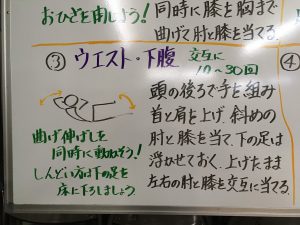 おひざを曲しよう!
同時に膝を胸まで
曲げて肘と膝を当てる。
③ ウエスト・下腹 交互に
10〜30回
④
頭の後ろで手を組み
首と肩を上げ、斜めの
肘と膝を当て、下の足は
浮かせておく。上げたまま
左右の肘と膝を交互に当てる。
曲げ伸ばしを
同時に動かそう!
しんどい方は下の足を
床に下ろしましょう